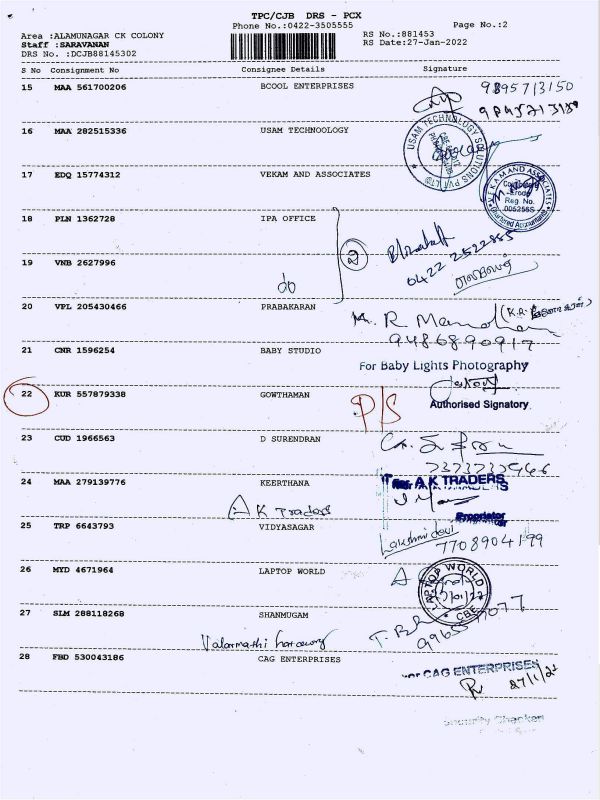 TPC/CJB DRS - PCX
Phone No.:0422-3505555
Page No.:2
Area :ALAMUNAGAR CK COLONY
RS No.:881453
Staff :SARAVANAN
RS Date:27-Jan-2022
DRS No. :DCJB88145302
S No Consignment No Consignee Details Signature
15 MAA 561700206 BCOOL ENTERPRISES
16 MAA 282515336 USAM TECHNOOLOGY
USAM TECHNOLOGY SOLUTIONS PVT LTD
17 EDQ 15774312 VEKAM AND ASSOCIATES
VEKAM AND ASSOCIATES
Erode
Reg. No.
006256S
Chartered Accountants
18 PLN 1362728 IPA OFFICE
2
19 VNB 2627996
do
0422 2522885
20 VPL 205430466 PRABAKARAN
9486890917
21 CNR 1596254 BABY STUDIO
For Baby Lights Photography
Authorised Signatory
22 KUR 557879338 GOWTHAMAN
P/S
23 CUD 1966563 D SURENDRAN
24 MAA 279139776 KEERTHANA
For A K TRADERS
A K Traders
Proprietor
25 TRP 6643793 VIDYASAGAR
Lakshmi devi
7708904199
26 MYD 4671964 LAPTOP WORLD
LAPTOP WORLD
CBE
27 SLM 288118268 SHANMUGAM
Valarmathi
28 FBD 530043186 CAG ENTERPRISES
For CAG ENTERPRISES
27/1/22